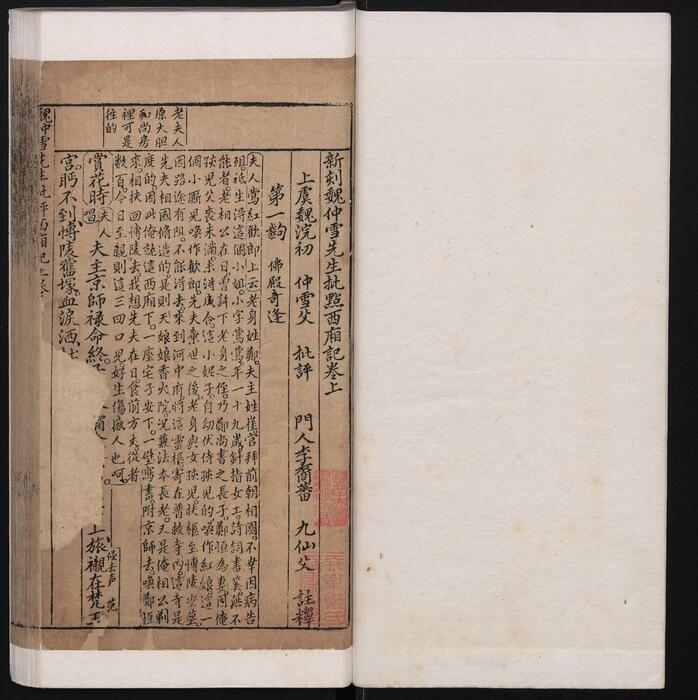 新刻魏仲雪先生批點西廂記卷上
上虞魏浣初 仲雪父 批評 門人李裔蕃 九仙父 註釋
第一齣 佛殿奇逢
夫人鶯紅歡郎上云老身姓鄭夫主姓崔官拜前朝相國不幸因病告
殂祗生得這個小姐小字鶯鶯年一十九歲針指女工詩詞書算無不
能者老相公在日曾許下老身之侄乃鄭尚書之長子鄭恒為妻因俺
孩兒父喪未滿未得成合這小妮子自幼伏侍孩兒的喚作紅娘這一
個小厮兒喚作歡郎先夫棄世之後老身與女孩兒扶柩至博陵安塟
因路途有阻不能得去來到河中府將這靈柩寄在普救寺內這寺是
先夫相國脩造的是則天娘娘香火院況兼法本長老又是俺相公剃
度的因此俺就這西廂下一座宅子安下一壁寫書附京師去喚鄭恒
來相扶回博陵去我想先夫在日食前方丈從者
數百今日至親則這三四口兒好生傷感人也呵
老夫人
原大胆
和尚房
裡可是
住的
賞花時 夫人唱 夫主京師祿命終
上旅櫬在梵王
宮盻不到博陵舊塚血淚洒
魏仲雪先生批評西廂記上卷